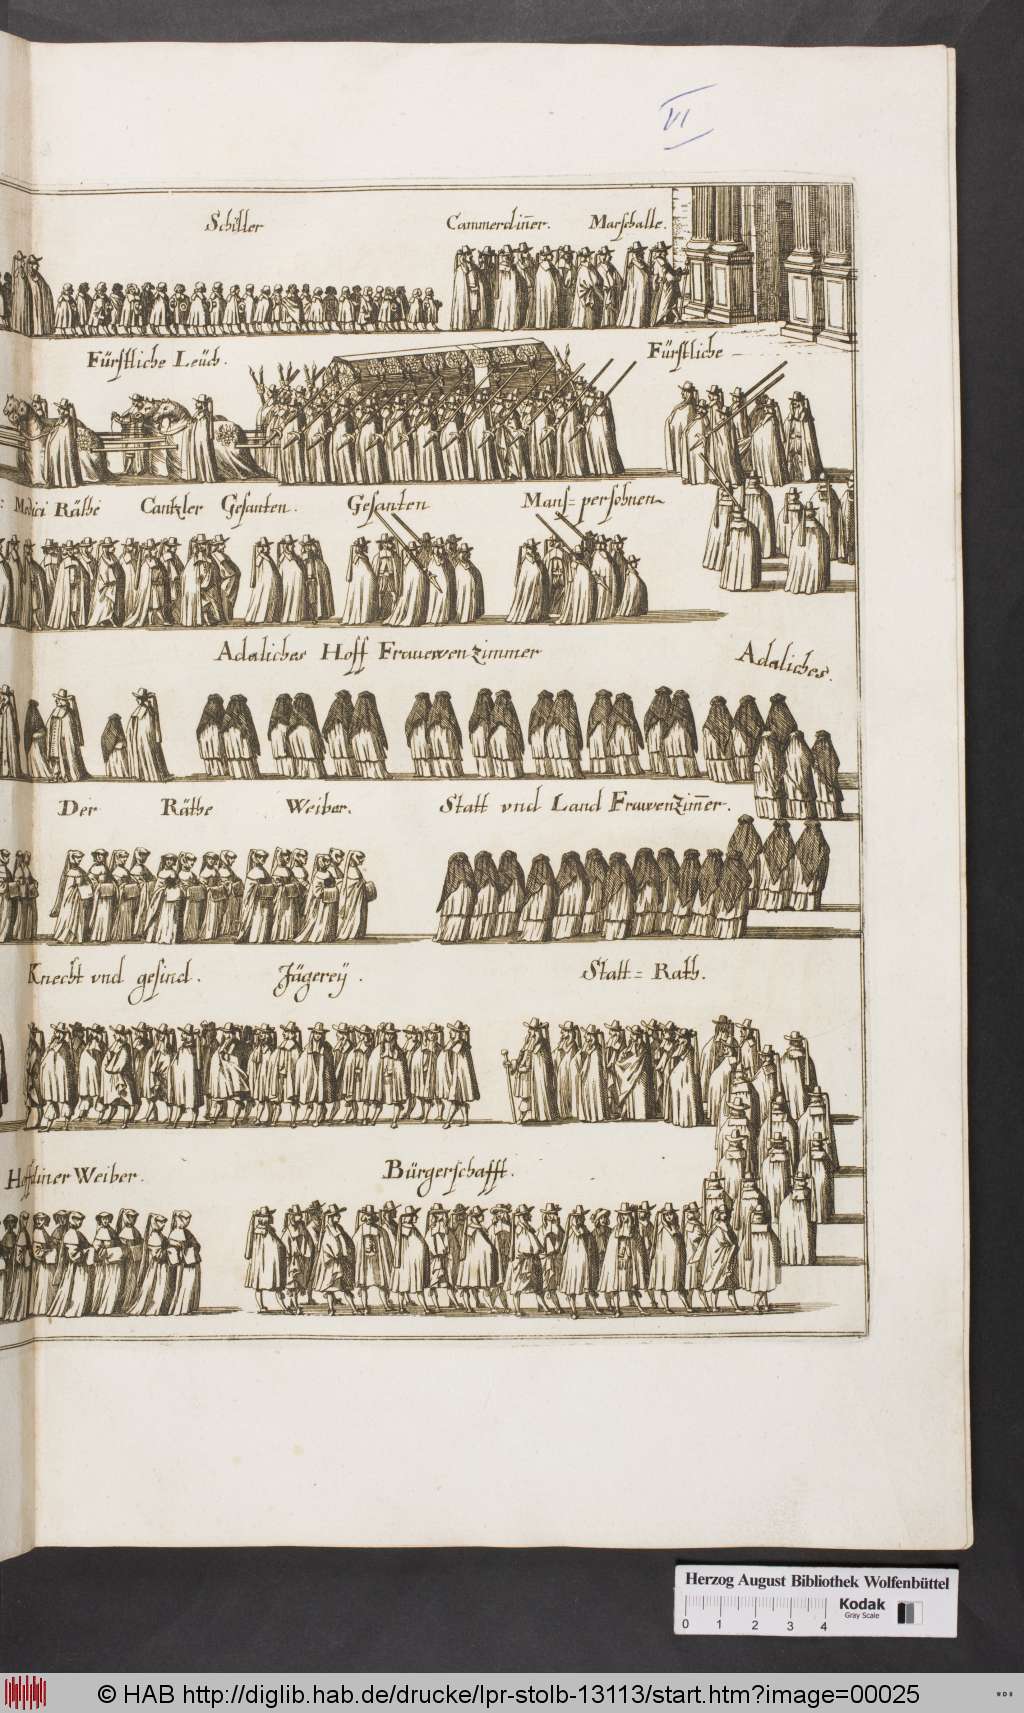 VI
Schüller Cammerdiñer. Marschalle.
Fürstliche Leüch. Fürstliche
Medici Räthe Cantzler Gesanten. Gesanten Mans=persohnen
Adaliches Hoff Frauewenzimmer Adaliches.
Der Räthe Weiber. Statt vnd Land Frawenzim̃er.
Knecht vnd gesind. Jägereÿ. Statt=Rath.
Hoffdiner Weiber. Bürgerschafft.
Herzog August Bibliothek Wolfenbüttel
Kodak
Gray Scale
0 1 2 3 4
© HAB http://diglib.hab.de/drucke/lpr-stolb-13113/start.htm?image=00025